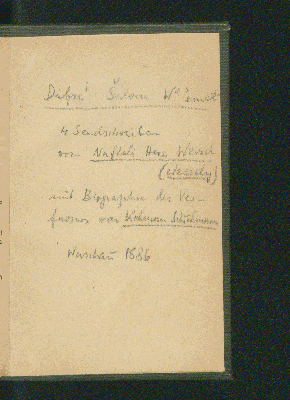 Dibre Šalom We'emet
4 Sendschreiben
von Naftali Herz Weisel
(Wessely)
mit Biographie des Ver-
fassers von
Warschau 1886